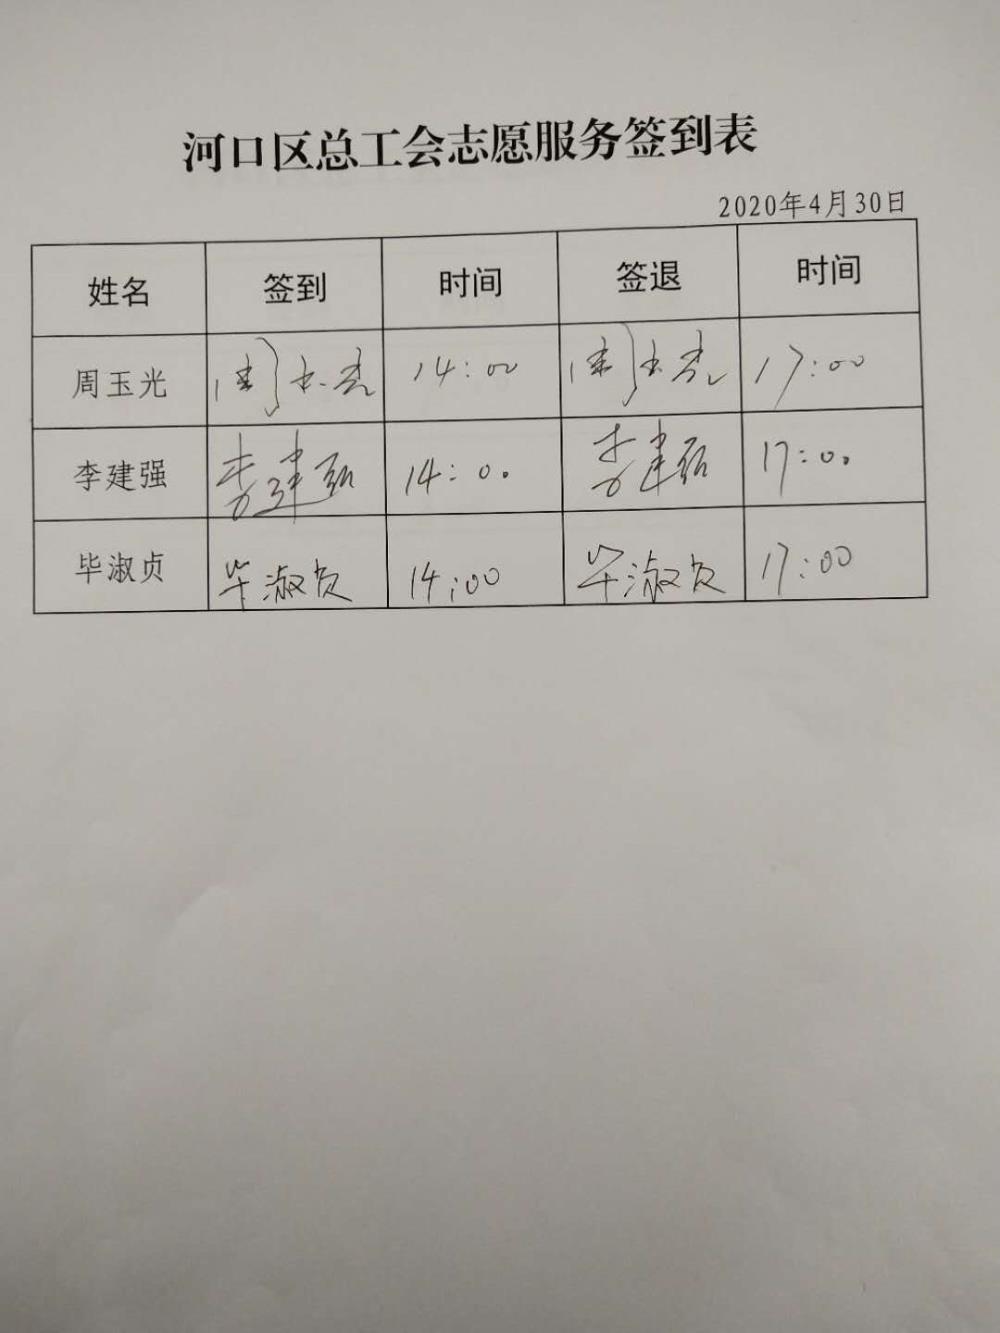 河口区总工会志愿服务签到表
2020年4月30日
姓名 签到 时间 签退 时间
周玉光 周玉光 14:00 周玉光 17:00
李建强 李建强 14:00 李建强 17:00
毕淑贞 毕淑贞 14:00 毕淑贞 17:00